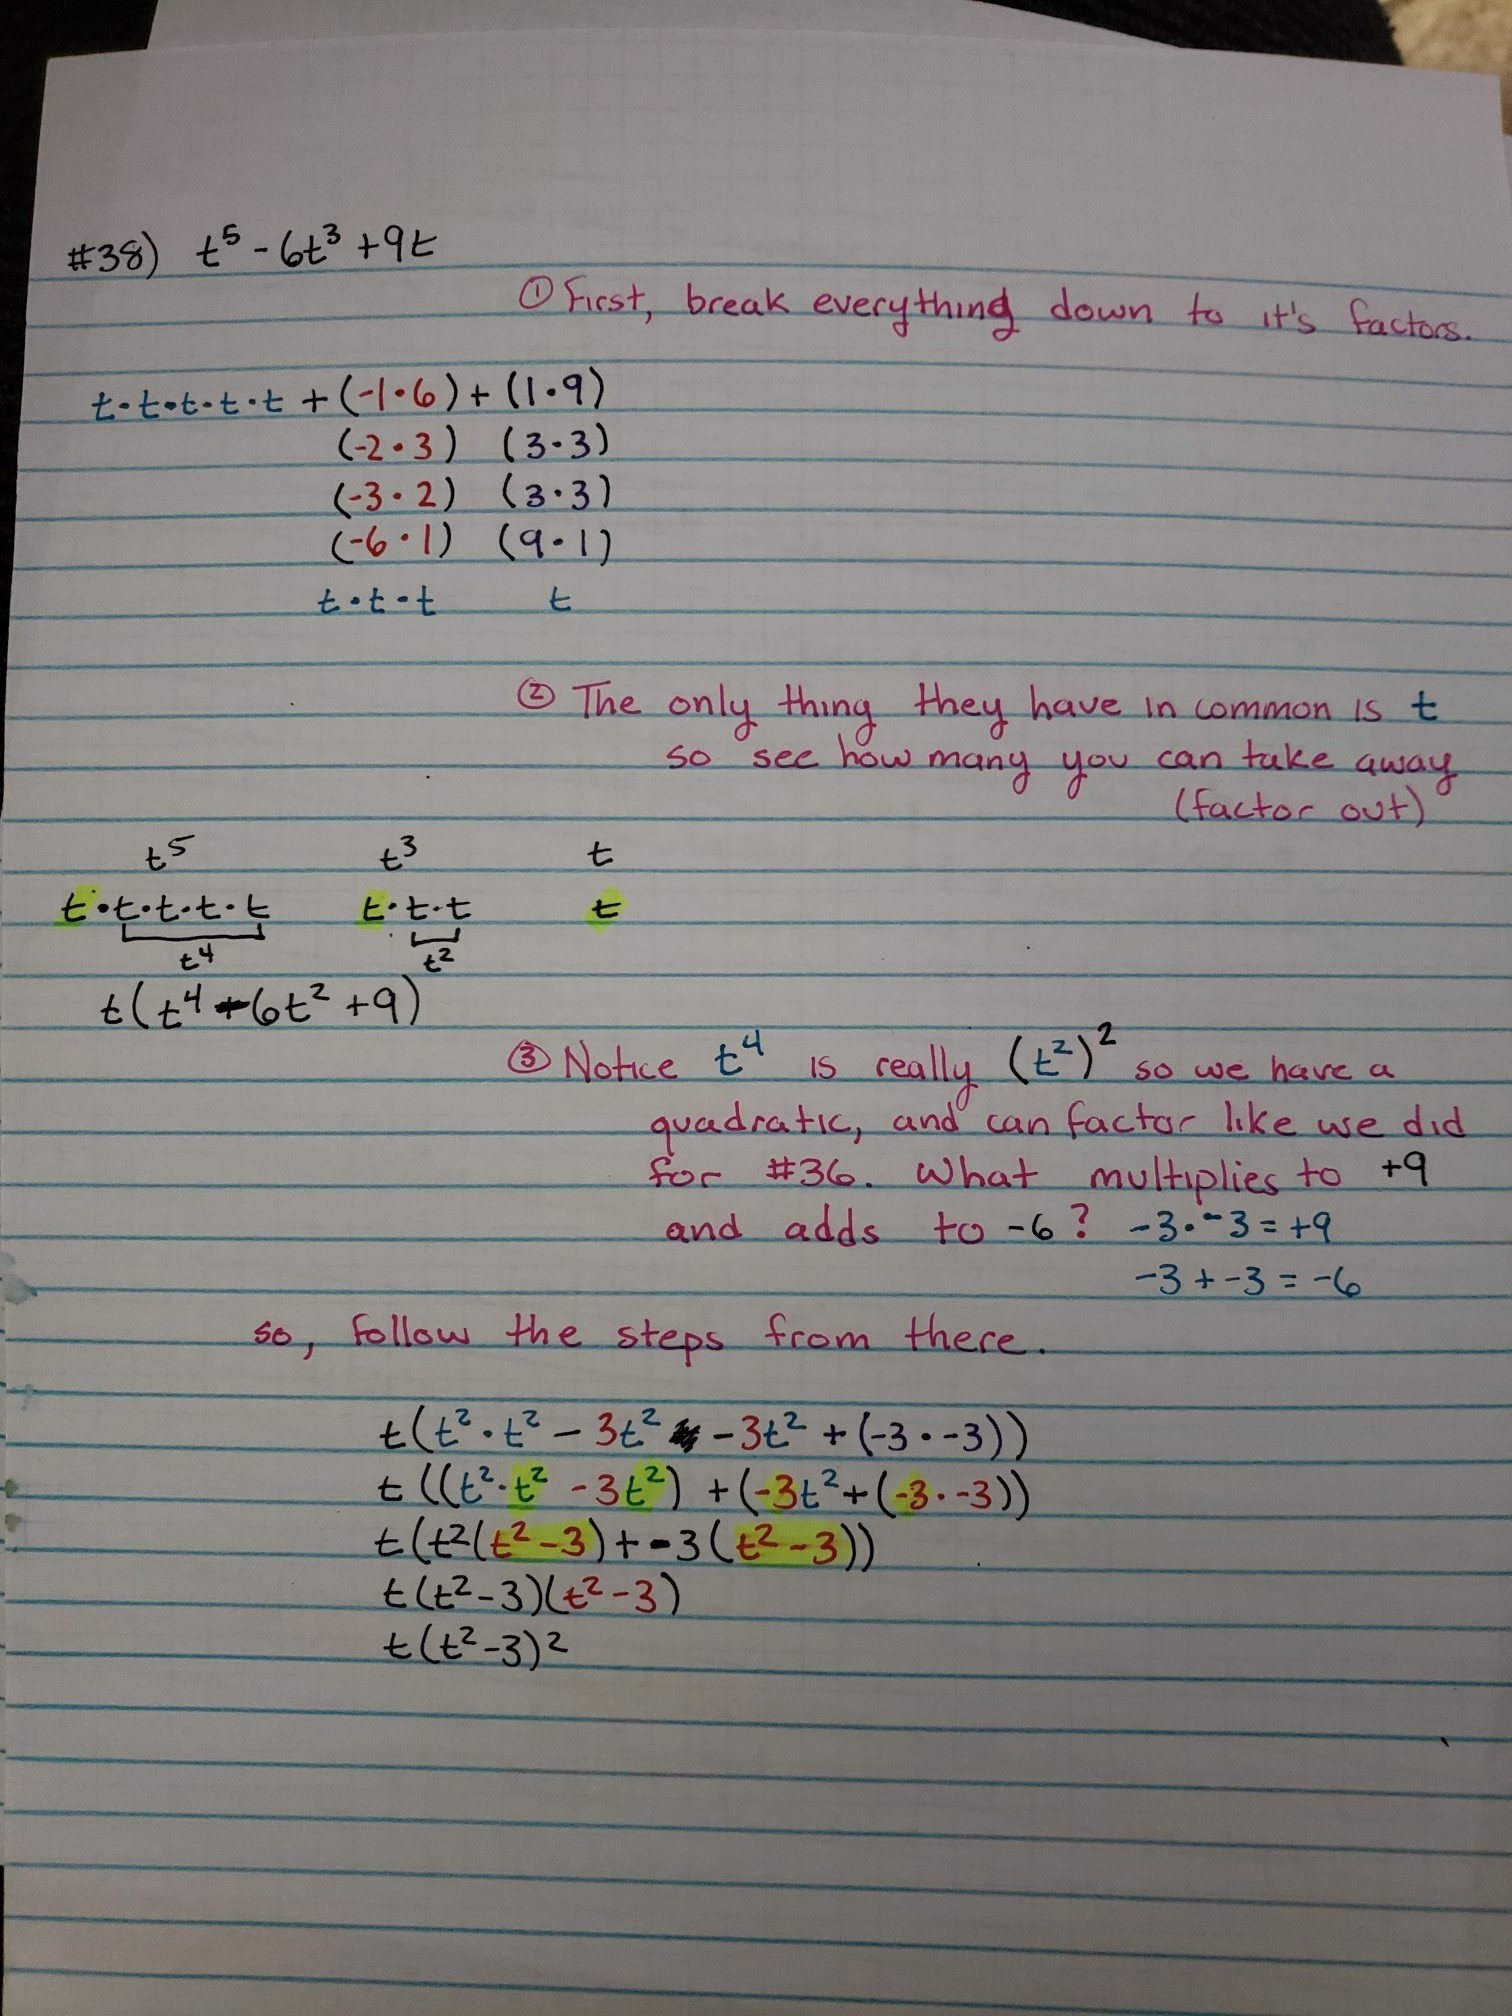 #38) t⁵ - 6t³ + 9t
① First, break everything down to it's factors.
t·t·t·t·t + (-1·6) + (1·9)
(-2·3) (3·3)
(-3·2) (3·3)
(-6·1) (9·1)
t·t·t t
② The only thing they have in common is t
so see how many you can take away
(factor out)
t⁵ t³ t
t·t·t·t·t t·t·t t
t⁴ t²
t(t⁴ - 6t² + 9)
③ Notice t⁴ is really (t²)² so we have a
quadratic, and can factor like we did
for #36. What multiplies to +9
and adds to -6? -3·-3 = +9
-3 + -3 = -6
so, follow the steps from there.
t(t²·t² - 3t² - 3t² + (-3·-3))
t((t²·t² - 3t²) + (-3t² + (-3·-3))
t(t²(t² - 3) + -3(t² - 3))
t(t² - 3)(t² - 3)
t(t² - 3)²